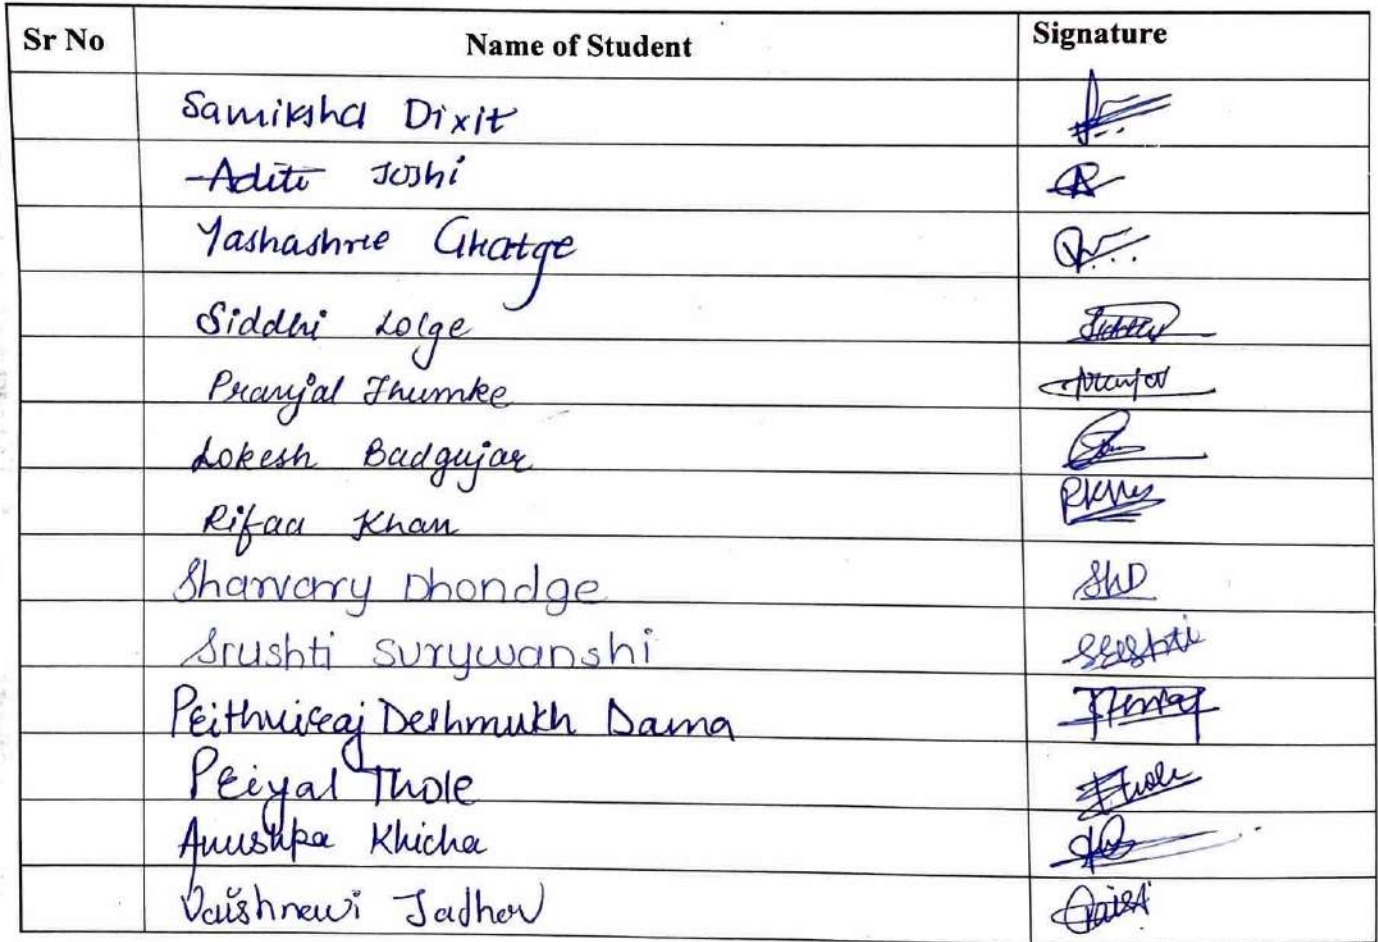 Sr No Name of Student Signature
Samiksha Dixit
Aditi Joshi
Yashashree Ghatge
Siddhi Lolge
Pranjal Jhumke
Lokesh Badgujar
Rifaa Khan
Sharvarry Dhondge ShD
Srushti Surywanshi Srushti
Prithviraj Deshmukh Dama
Priyal Thole Thole
Anushka Khicha
Vaishnavi Jadhav